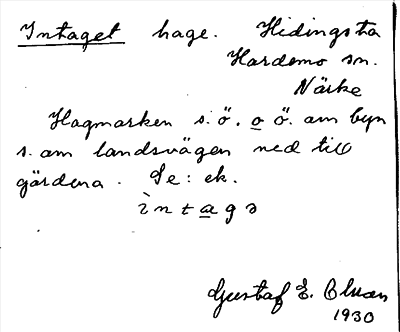 Intaget hage. Hidingsta
Hardemo sn.
Närke
Hagmarken s.ö. o ö. om byn
s. om landsvägen ned till
gärdena. Se: ek.
ìntags
Gustaf E. Olsson
1930